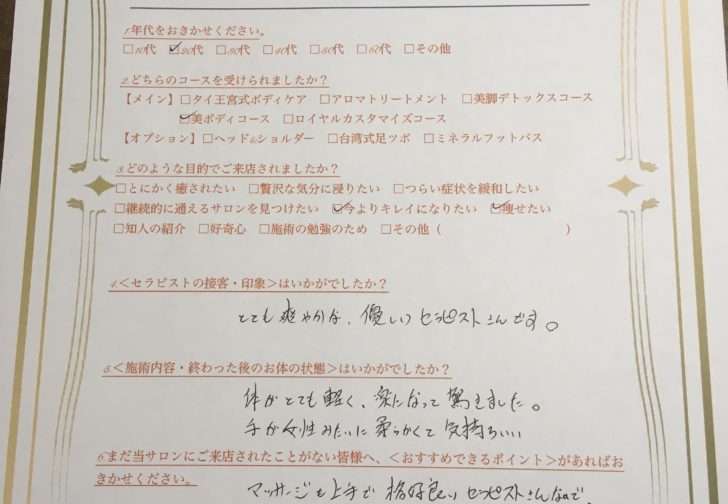 1.年代をおきかせください。
□10代 ☑20代 □30代 □40代 □50代 □60代 □その他
2.どちらのコースを受けられましたか？
【メイン】□タイ王宮式ボディケア □アロマトリートメント □美脚デトックスコース
☑美ボディコース □ロイヤルカスタマイズコース
【オプション】□ヘッド&ショルダー □台湾式足ツボ □ミネラルフットバス
3.どのような目的でご来店されましたか？
□とにかく癒されたい □贅沢な気分に浸りたい □つらい症状を緩和したい
□継続的に通えるサロンを見つけたい ☑今よりキレイになりたい ☑痩せたい
□知人の紹介 □好奇心 □施術の勉強のため □その他（ ）
4.＜セラピストの接客・印象＞はいかがでしたか？
とても爽やかな、優しいセラピストさんです。
5.＜施術内容・終わった後のお体の状態＞はいかがでしたか？
体がとても軽く、楽になって驚きました。
手が女性みたいに柔らかくて気持ちいい
6.まだ当サロンにご来店されたことがない皆様へ、＜おすすめできるポイント＞があればお
きかせください。
マッサージも上手で格好良いセラピストさんなので